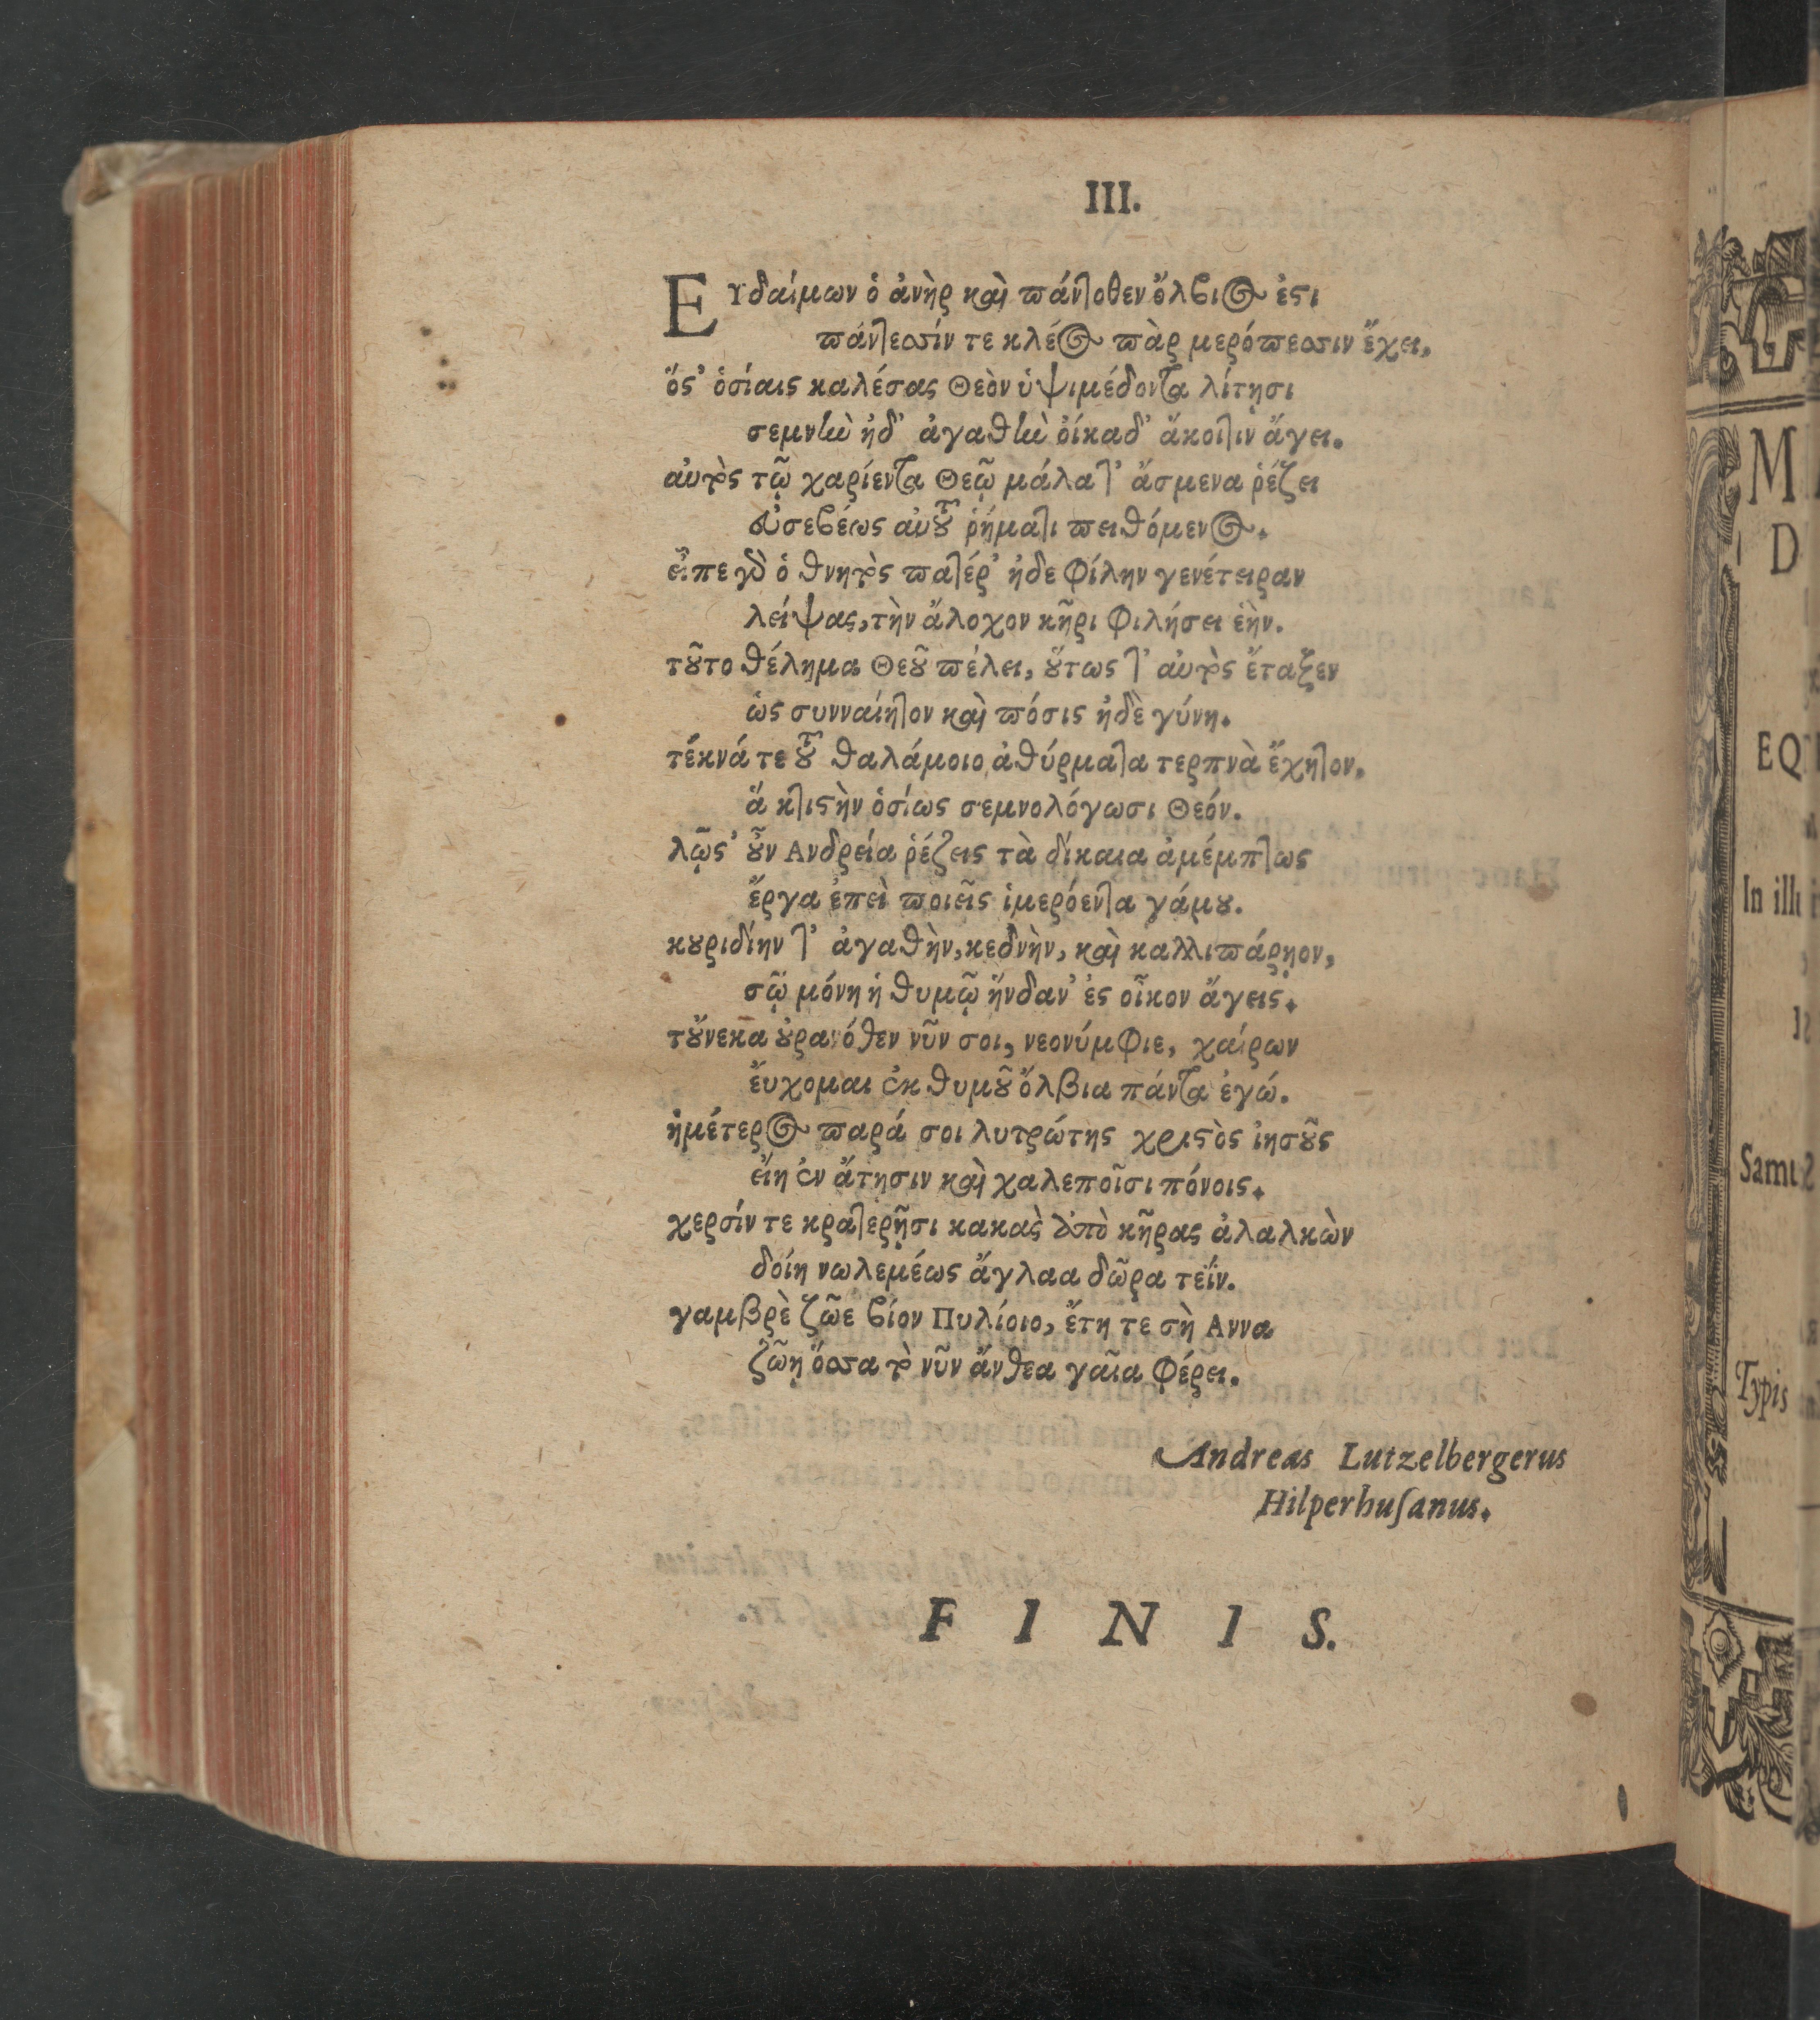 III.
Ευδαίμων ὁ ἀνὴρ καὶ πάντοθεν ὄλβιος ἐςι
πάντεσσίν τε κλέος πὰρ μερόπεσσιν ἔχει,
ὅς' ὁσίαις καλέσας Θεὸν ὑψιμέδοντα λίτησι
σεμνὴν ἠδ' ἀγαθὴν οἴκαδ' ἄκοιτιν ἄγει.
αὐτὸς τῷ χαρίεντα Θεῷ μάλα τ' ἄσμενα ῥέζει
εὐσεβέως αὐτοῦ ῥήματι πειθόμενος.
εἶπε γὰρ ὁ θνητὸς πατέρ' ἠδε φίλην γενέτειραν
λείψας, τὴν ἄλοχον κῆρι φιλήσει ἑὴν.
τοῦτο θέλημα Θεοῦ πέλει, οὕτως τ' αὐτὸς ἔταξεν
ὡς συνναίητον καὶ πόσις ἠδὲ γύνη.
τέκνά τε τοῦ θαλάμοιο ἀθύρματα τερπνὰ ἔχητον,
ἅ κτιςὴν ὁσίως σεμνολόγωσι Θεόν.
λῷς' οὖν Ανδρεία ῥέζεις τὰ δίκαια ἀμέμπτως
ἔργα ἐπεὶ ποιεῖς ἱμερόεντα γάμου.
κουριδίην τ' ἀγαθὴν, κεδνὴν, καὶ καλλιπάρῃον,
σῷ μόνη ἡ θυμῷ ἥνδαν' ἐς οἶκον ἄγεις.
τοὔνεκα οὐρανόθεν νῦν σοι, νεονύμφιε, χαίρων
ἔυχομαι ἐκ θυμοῦ ὄλβια πάντα ἐγώ.
ἡμέτερος παρά σοι λυτρώτης χριςὸς ἰησοῦς
εἴη ἐν ἄτησιν καὶ χαλεποῖσι πόνοις.
χερσίν τε κρατερῇσι κακὰς ἀπὸ κῆρας ἀλαλκὼν
δοίη νωλεμέως ἄγλαα δῶρα τεΐν.
γαμβρὲ ζῶε βίον Πυλίοιο, ἔτη τε σὴ Αννα
ζῶῃ ὅσσα τὸ νῦν ἄνθεα γαῖα φέρει.
Andreas Lutzelbergerus
Hilperhuſanus.
F I N I S.
M
D
EQ
In illu
Samu
Typis